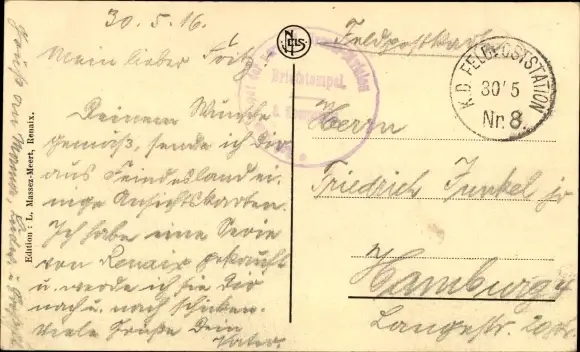 30.5.16.
Mein lieber Fritz
Deinem Wunsche
gemäß, sende ich Dir
aus Feindesland ei-
nige Ansichtskarten.
Ich habe eine Serie
von Renaix gekauft
u. werde ich sie Dir
nach u. nach schicken.
Viele Grüße Dein
Vater.
Edition : L. Masser-Meert, Renaix.
NELS
Feldpostkarte
Briefstempel
K.D. FELDPOSTSTATION
30 5
Nr. 8.
Herrn
Friedrich Funkel jr
Hamburg 4
Langestr.